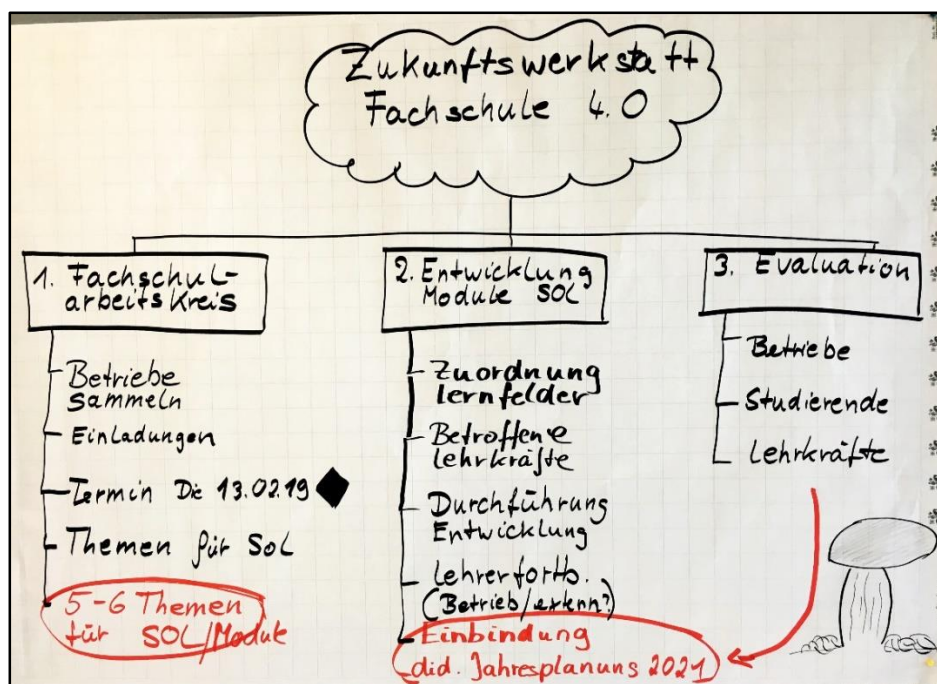 Zukunftswerkstatt
Fachschule 4.0
1. Fachschul-
arbeitskreis
Betriebe
sammeln
Einladungen
Termin Die 13.02.19
Themen für SOL
5-6 Themen
für SOL/Module
2. Entwicklung
Module SOL
Zuordnung
Lernfelder
Betroffene
Lehrkräfte
Durchführung
Entwicklung
Lehrerfortb.
(Betrieb/extern?)
Einbindung
did. Jahresplanung 2021
3. Evaluation
Betriebe
Studierende
Lehrkräfte